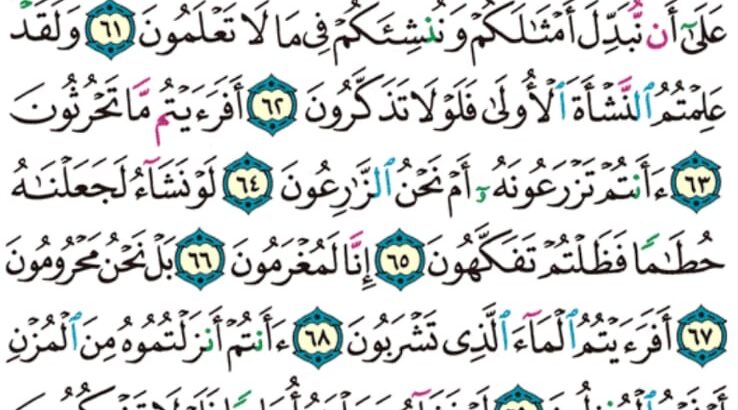 عَلَىٰٓ أَن نُّبَدِّلَ أَمْثَٰلَكُمْ وَنُنشِئَكُمْ فِى مَا لَا تَعْلَمُونَ ٦١ وَلَقَدْ
عَلِمْتُمُ ٱلنَّشْأَةَ ٱلْأُولَىٰ فَلَوْلَا تَذَكَّرُونَ ٦٢ أَفَرَءَيْتُم مَّا تَحْرُثُونَ
٦٣ ءَأَنتُمْ تَزْرَعُونَهُۥٓ أَمْ نَحْنُ ٱلزَّٰرِعُونَ ٦٤ لَوْ نَشَآءُ لَجَعَلْنَٰهُ
حُطَٰمًا فَظَلْتُمْ تَفَكَّهُونَ ٦٥ إِنَّا لَمُغْرَمُونَ ٦٦ بَلْ نَحْنُ مَحْرُومُونَ
٦٧ أَفَرَءَيْتُمُ ٱلْمَآءَ ٱلَّذِى تَشْرَبُونَ ٦٨ ءَأَنتُمْ أَنزَلْتُمُوهُ مِنَ ٱلْمُزْنِ